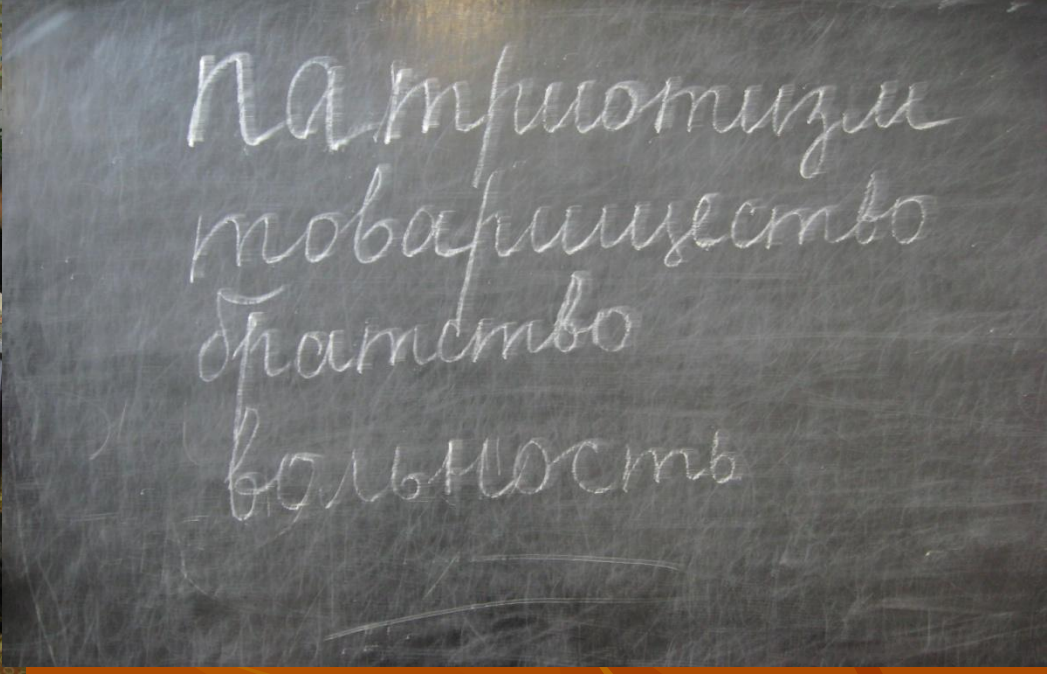 патриотизм
товарищество
братство
вольность